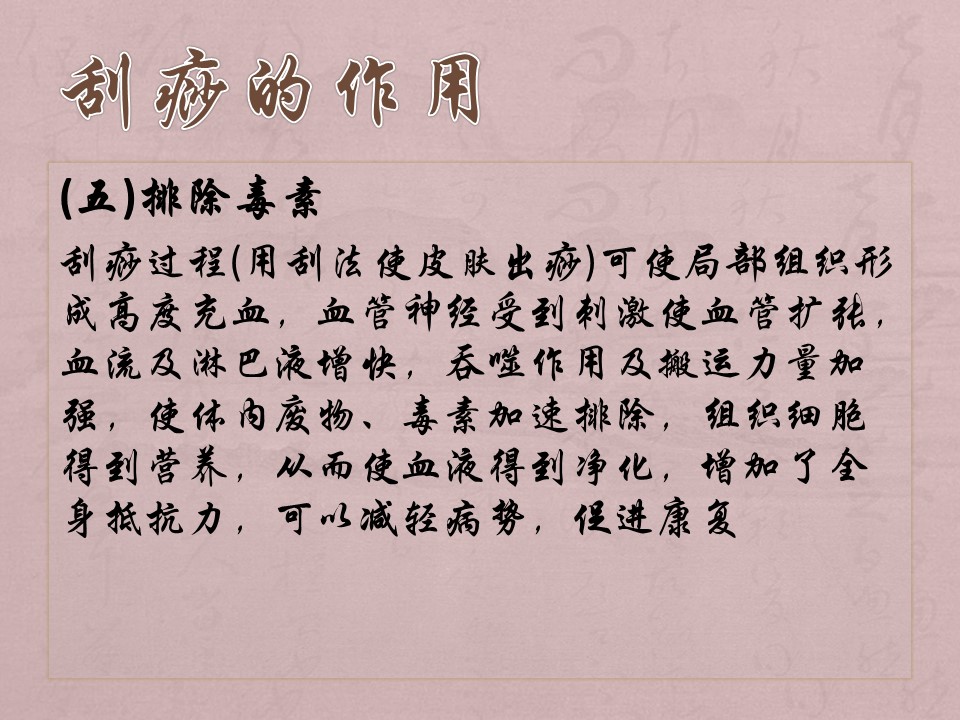 刮痧的作用
(五)排除毒素
刮痧过程(用刮法使皮肤出痧)可使局部组织形
成高度充血，血管神经受到刺激使血管扩张，
血流及淋巴液增快，吞噬作用及搬运力量加
强，使体内废物、毒素加速排除，组织细胞
得到营养，从而使血液得到净化，增加了全
身抵抗力，可以减轻病势，促进康复